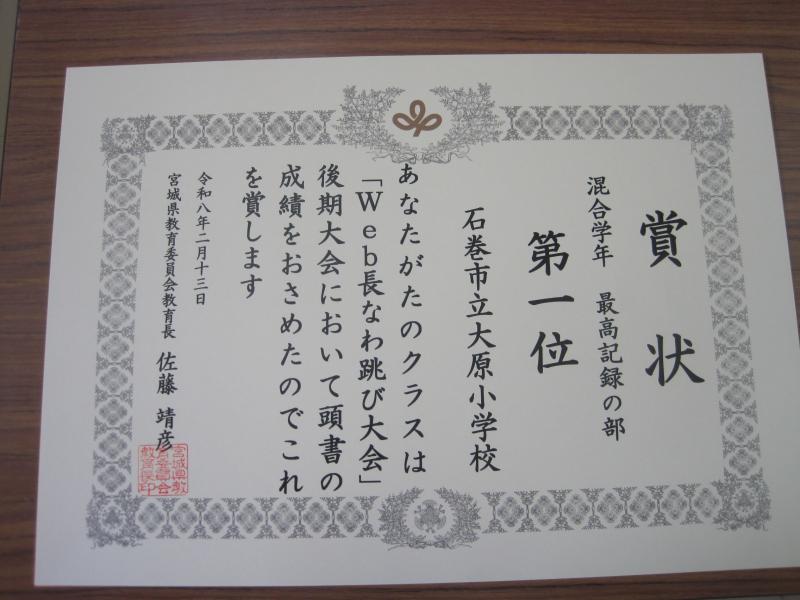 賞状
混合学年 最高記録の部
第一位
石巻市立大原小学校
あなたがたのクラスは
「Web長なわ跳び大会」
後期大会において頭書の
成績をおさめたのでこれ
を賞します
令和八年二月十三日
宮城県教育委員会教育長 佐藤 靖彦
宮城県教
育委員会
教育長印